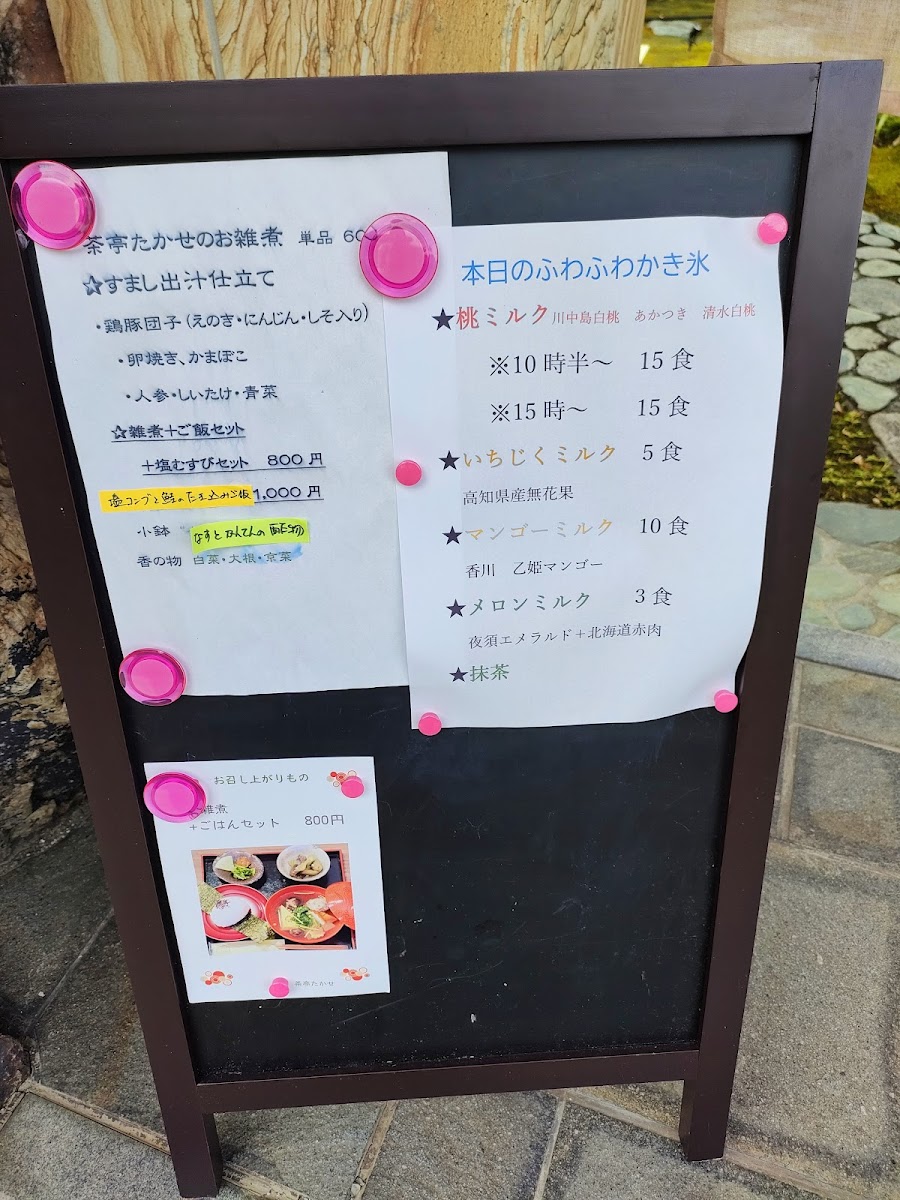 茶亭たかせのお雑煮 単品 60
☆すまし出汁仕立て
・鶏豚団子(えのき・にんじん・しそ入り)
・卵焼き、かまぼこ
・人参・しいたけ・青菜
☆雑煮+ご飯セット
+塩むすびセット 800円
塩コンブと鮭のたき込みご飯 1,000円
小鉢 なすとかんてんの酢物
香の物 白菜・大根・京菜
本日のふわふわかき氷
★桃ミルク 川中島白桃 あかつき 清水白桃
※10時半〜 15食
※15時〜 15食
★いちじくミルク 5食
高知県産無花果
★マンゴーミルク 10食
香川 乙姫マンゴー
★メロンミルク 3食
夜須エメラルド+北海道赤肉
★抹茶
お召し上がりもの
雑煮
+ごはんセット 800円
茶亭たかせ